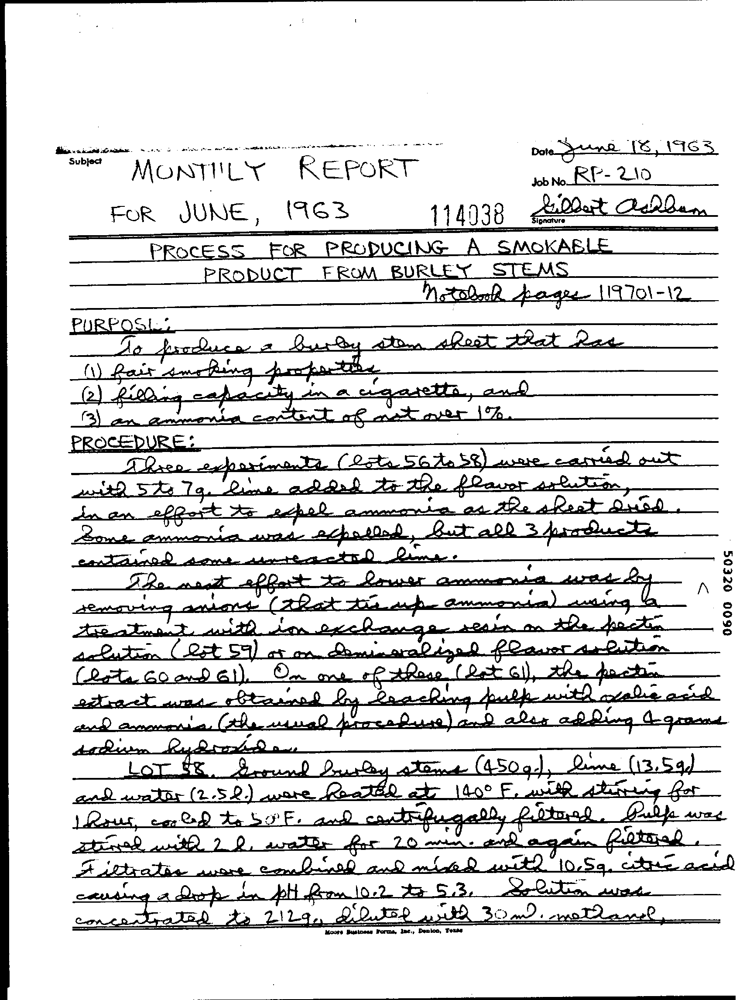 Date June 18, 1963
Subject MONTHLY REPORT
Job No. RP-210
FOR JUNE, 1963 114038 Gilbert Ashburn
Signature
PROCESS FOR PRODUCING A SMOKABLE
PRODUCT FROM BURLEY STEMS
Notebook pages 119701-12
PURPOSE:
To produce a burley stem sheet that has
(1) fair smoking properties
(2) filling capacity in a cigarette, and
(3) an ammonia content of not over 1%.
PROCEDURE:
Three experiments (lots 56 to 58) were carried out
with 5 to 7g. lime added to the flavor solution,
in an effort to expel ammonia as the sheet dried.
Some ammonia was expelled, but all 3 products
contained some unreacted lime.
The next effort to lower ammonia was by
removing anions (that tie up ammonia) using a
treatment with ion exchange resin on the pectin
solution (lot 59) or on demineralized flavor solution
(lots 60 and 61). On one of these (lot 61), the pectin
extract was obtained by leaching pulp with oxalic acid
and ammonia (the usual procedure) and also adding 4 grams
sodium hydroxide.
LOT 58. Ground burley stems (450g.), lime (13.5g.)
and water (2.5l.) were heated at 140° F. with stirring for
1 hour, cooled to 50°F. and centrifugally filtered. Pulp was
stirred with 2 l. water for 20 min. and again filtered.
Filtrates were combined and mixed with 10.5g. citric acid
causing a drop in pH from 10.2 to 5.3. Solution was
concentrated to 212g., diluted with 30 ml. methanol,
Moore Business Forms, Inc., Denton, Texas
50320 0090